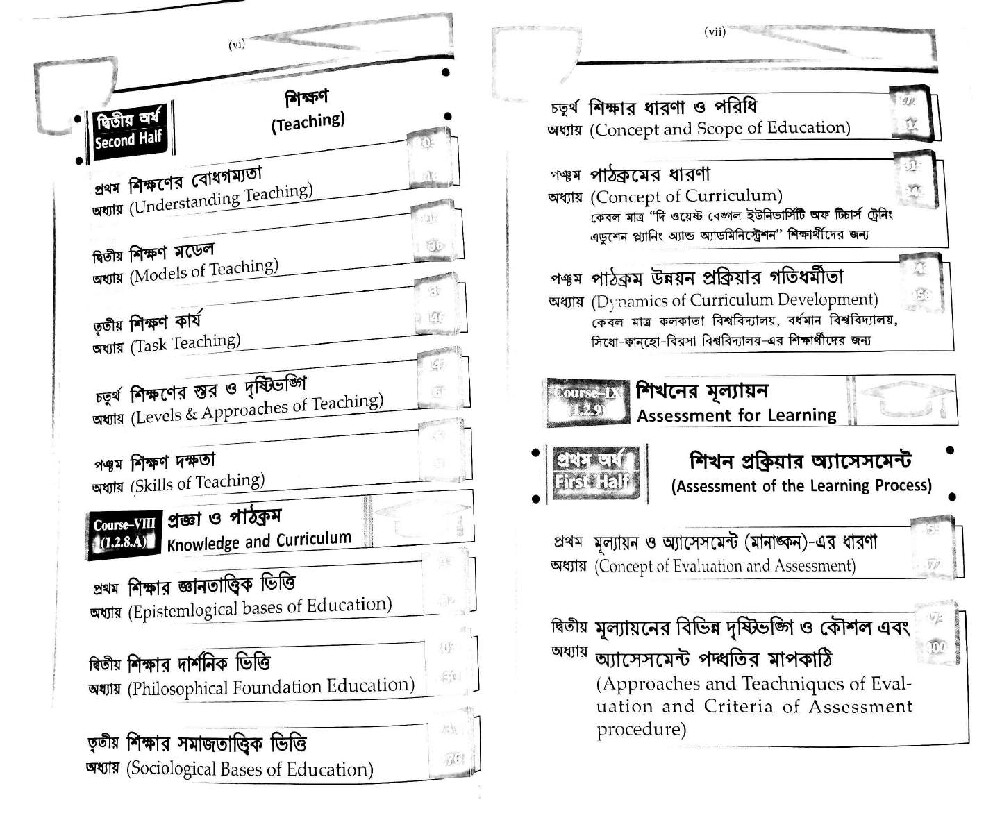 (vi)
দ্বিতীয় অর্ধ
Second Half
শিক্ষণ
(Teaching)
প্রথম শিক্ষণের বোধগম্যতা
অধ্যায় (Understanding Teaching)
দ্বিতীয় শিক্ষণ মডেল
অধ্যায় (Models of Teaching)
তৃতীয় শিক্ষণ কার্য
অধ্যায় (Task Teaching)
চতুর্থ শিক্ষণের স্তর ও দৃষ্টিভঙ্গি
অধ্যায় (Levels & Approaches of Teaching)
পঞ্চম শিক্ষণ দক্ষতা
অধ্যায় (Skills of Teaching)
Course–VIII
(1.2.8.A)
প্রজ্ঞা ও পাঠক্রম
Knowledge and Curriculum
প্রথম শিক্ষার জ্ঞানতাত্ত্বিক ভিত্তি
অধ্যায় (Epistemlogical bases of Education)
দ্বিতীয় শিক্ষার দার্শনিক ভিত্তি
অধ্যায় (Philosophical Foundation Education)
তৃতীয় শিক্ষার সমাজতাত্ত্বিক ভিত্তি
অধ্যায় (Sociological Bases of Education)
(vii)
চতুর্থ শিক্ষার ধারণা ও পরিধি
অধ্যায় (Concept and Scope of Education)
পঞ্চম পাঠক্রমের ধারণা
অধ্যায় (Concept of Curriculum)
কেবল মাত্র “দি ওয়েস্ট বেঙ্গল ইউনিভার্সিটি অফ টিচার্স ট্রেনিং
এডুশেন প্ল্যানিং অ্যান্ড অ্যাডমিনিস্ট্রেশন” শিক্ষার্থীদের জন্য
পঞ্চম পাঠক্রম উন্নয়ন প্রক্রিয়ার গতিধর্মীতা
অধ্যায় (Dynamics of Curriculum Development)
কেবল মাত্র কলকাতা বিশ্ববিদ্যালয়, বর্ধমান বিশ্ববিদ্যালয়,
সিধো-কান্‌হো-বিরসা বিশ্ববিদ্যালয়-এর শিক্ষার্থীদের জন্য
Course–IX
(1.2.9)
শিখনের মূল্যায়ন
Assessment for Learning
প্রথম অর্ধ
First Half
শিখন প্রক্রিয়ার অ্যাসেসমেন্ট
(Assessment of the Learning Process)
প্রথম মূল্যায়ন ও অ্যাসেসমেন্ট (মানাঙ্কন)-এর ধারণা
অধ্যায় (Concept of Evaluation and Assessment)
দ্বিতীয় মূল্যায়নের বিভিন্ন দৃষ্টিভঙ্গি ও কৌশল এবং
অধ্যায় অ্যাসেসমেন্ট পদ্ধতির মাপকাঠি
(Approaches and Teachniques of Eval-
uation and Criteria of Assessment
procedure)